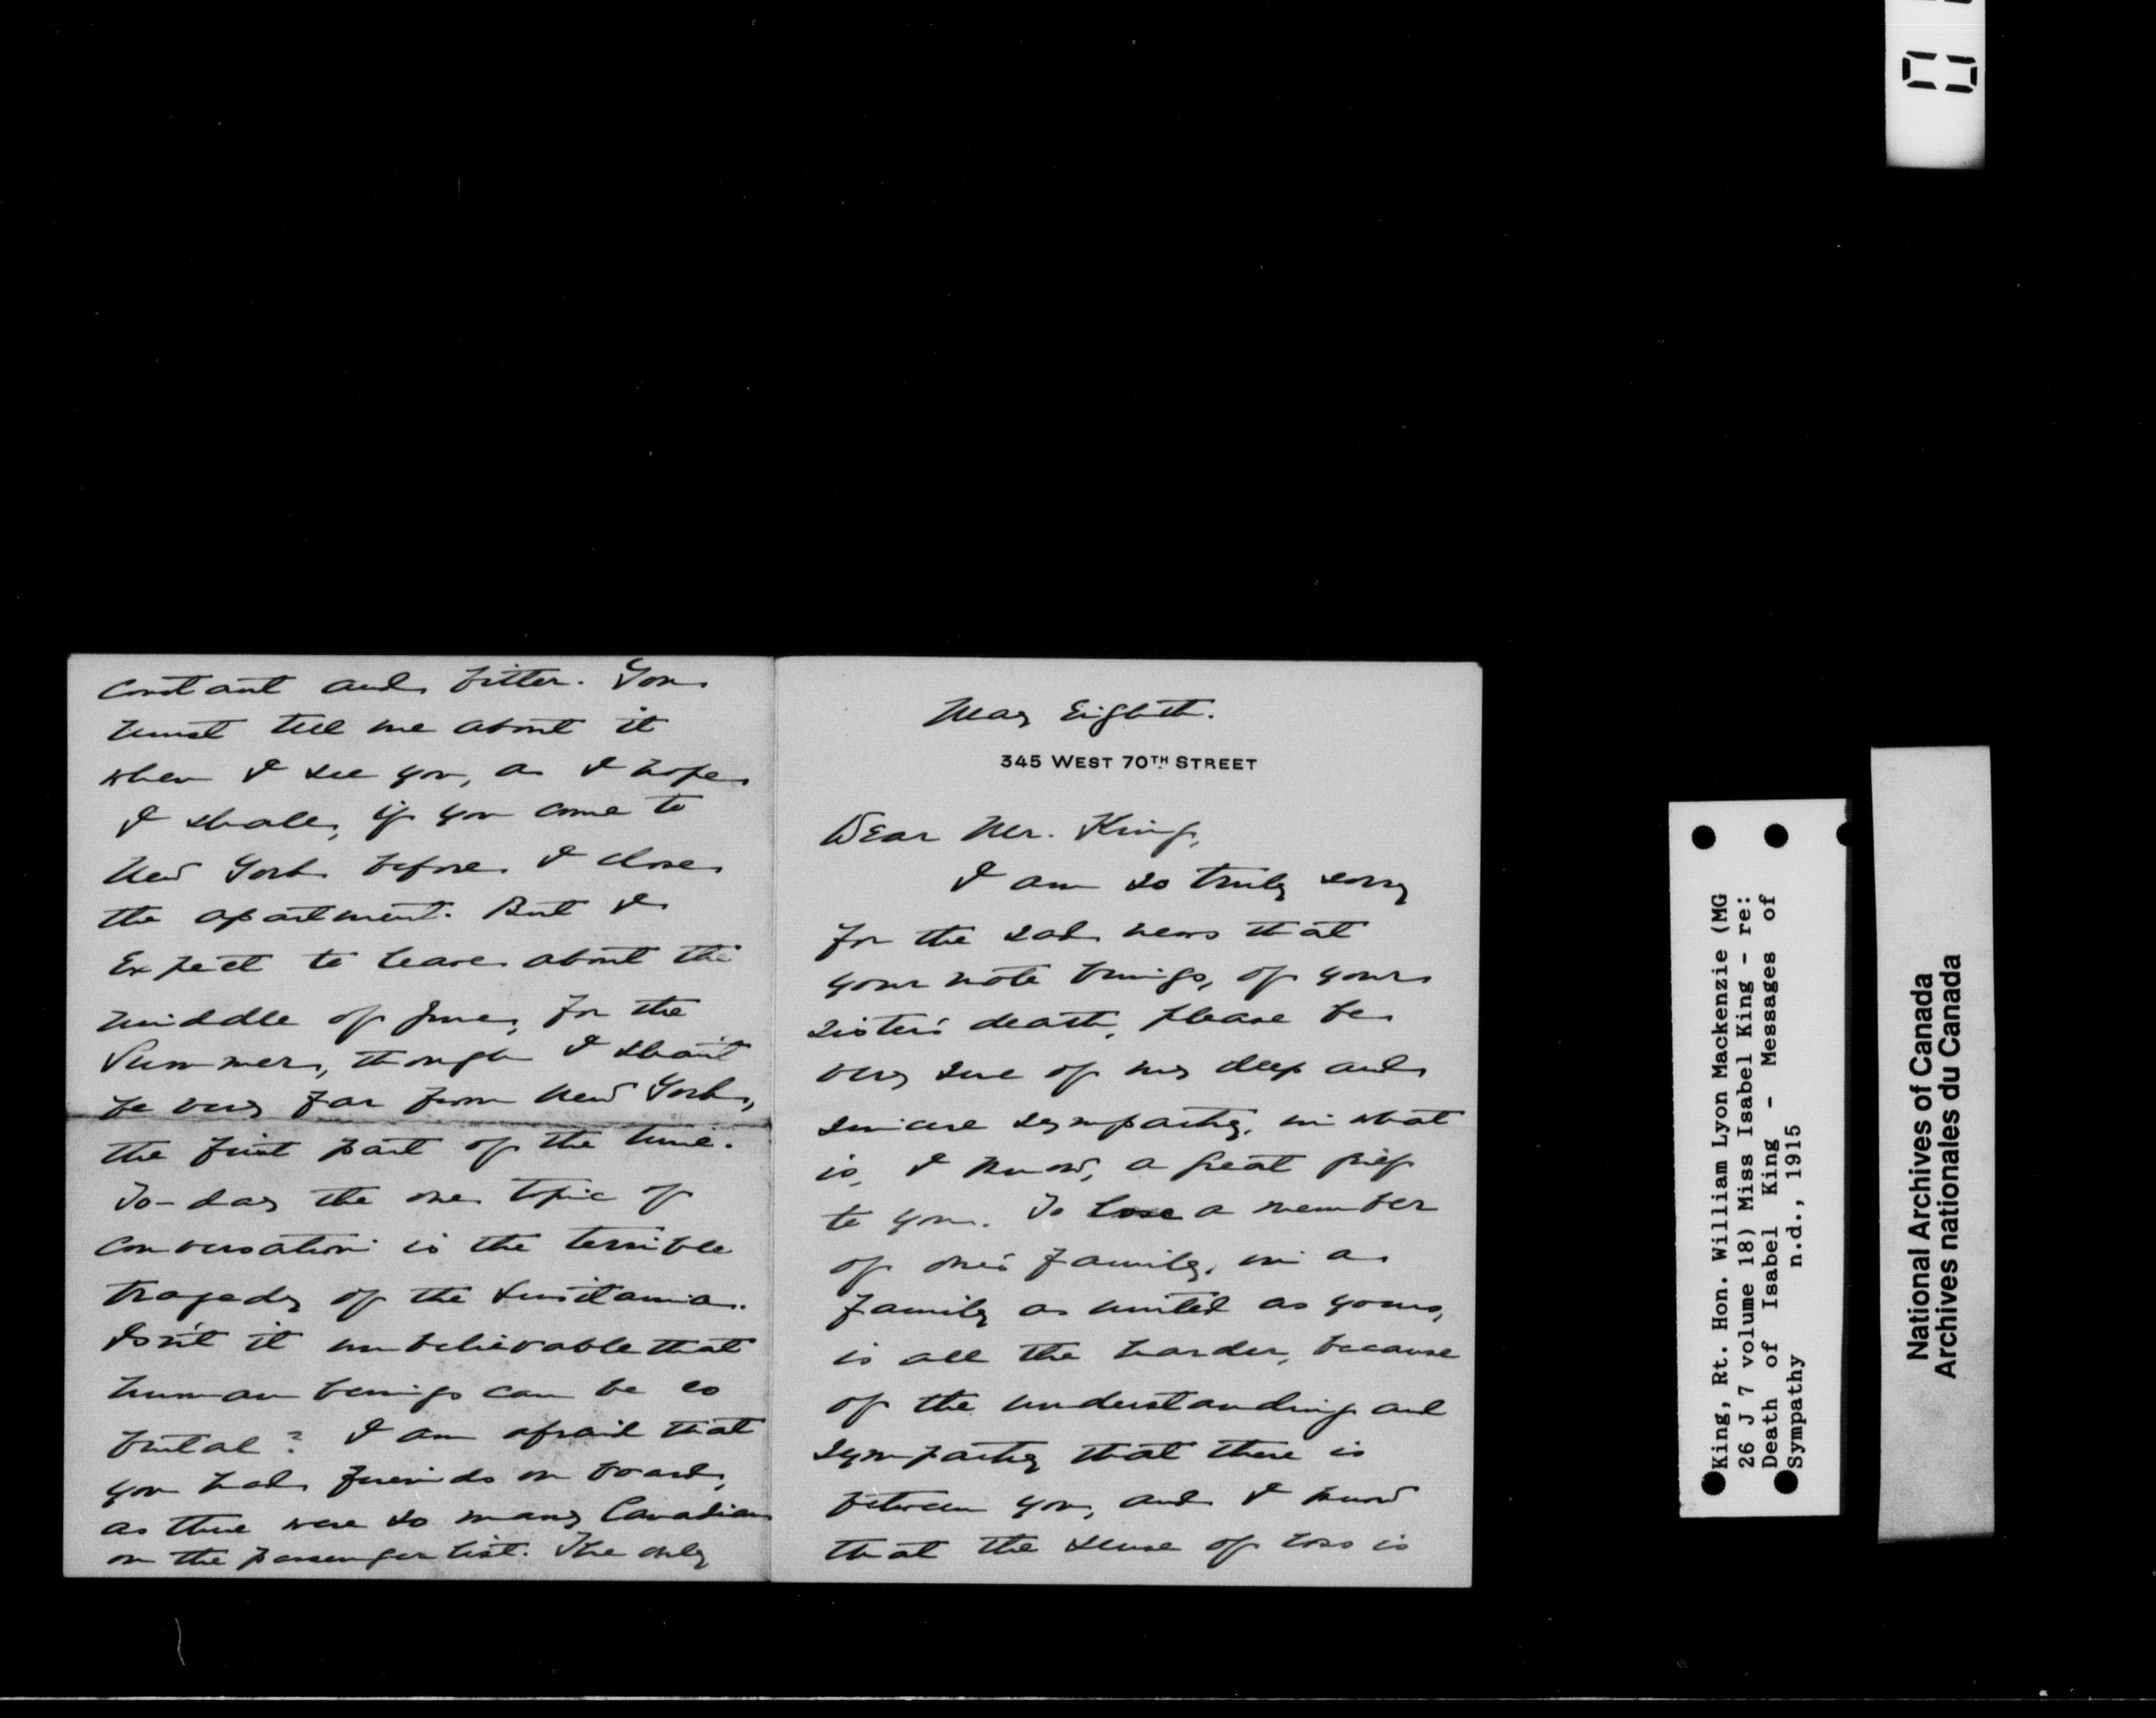 May Eighth.
345 WEST 70TH STREET
Dear Mr. King,
I am so truly sorry
for the sad news that
your note brings, of your
sister's death, please be
very sure of my deep and
sincere sympathy, in what
is, I know, a great grief
to you. To lose a member
of one's family, in a
family as united as yours,
is all the harder, because
of the understanding and
sympathy that there is
between you, and I know
that the sense of loss is
constant and bitter. You
must tell me about it
when I see you, as I hope
I shall, if you come to
New York before I close
the apartment. But I
expect to leave about the
middle of June, for the
Summer, though I shan't
be very far from New York,
the first part of the time.
To-day the one topic of
conversation is the terrible
tragedy of the Lusitania.
Isn't it unbelievable that
human beings can be so
brutal? I am afraid that
you had friends on board,
as there were so many Canadians
on the passenger list. The only
King, Rt. Hon. William Lyon Mackenzie (MG
26 J 7 volume 18) Miss Isabel King - re:
Death of Isabel King - Messages of
Sympathy n.d., 1915
National Archives of Canada
Archives nationales du Canada